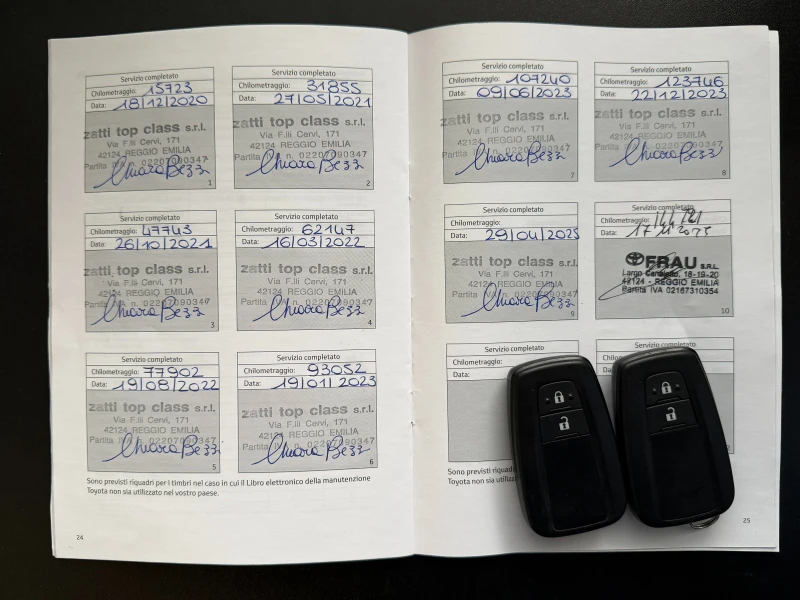 Servizio completato
Chilometraggio: 15723
Data: 18/12/2020
zatti top class s.r.l.
Via F.lli Cervi, 171
42124 REGGIO EMILIA
Partita IVA n. 02207090347
Chiara Bezzi
1
Servizio completato
Chilometraggio: 31855
Data: 27/05/2021
zatti top class s.r.l.
Via F.lli Cervi, 171
42124 REGGIO EMILIA
Partita IVA n. 02207090347
Chiara Bezzi
2
Servizio completato
Chilometraggio: 47743
Data: 26/10/2021
zatti top class s.r.l.
Via F.lli Cervi, 171
42124 REGGIO EMILIA
Partita IVA n. 02207090347
Chiara Bezzi
3
Servizio completato
Chilometraggio: 62147
Data: 16/03/2022
zatti top class s.r.l.
Via F.lli Cervi, 171
42124 REGGIO EMILIA
Partita IVA n. 02207090347
Chiara Bezzi
4
Servizio completato
Chilometraggio: 77902
Data: 19/08/2022
zatti top class s.r.l.
Via F.lli Cervi, 171
42124 REGGIO EMILIA
Partita IVA n. 02207090347
Chiara Bezzi
5
Servizio completato
Chilometraggio: 93052
Data: 19/01/2023
zatti top class s.r.l.
Via F.lli Cervi, 171
42124 REGGIO EMILIA
Partita IVA n. 02207090347
Chiara Bezzi
6
Sono previsti riquadri per i timbri nel caso in cui il Libro elettronico della manutenzione
Toyota non sia utilizzato nel vostro paese.
24
Servizio completato
Chilometraggio: 107240
Data: 09/06/2023
zatti top class s.r.l.
Via F.lli Cervi, 171
42124 REGGIO EMILIA
Partita IVA n. 02207090347
Chiara Bezzi
7
Servizio completato
Chilometraggio: 123746
Data: 22/12/2023
zatti top class s.r.l.
Via F.lli Cervi, 171
42124 REGGIO EMILIA
Partita IVA n. 02207090347
Chiara Bezzi
8
Servizio completato
Chilometraggio:
Data: 29/04/2025
zatti top class s.r.l.
Via F.lli Cervi, 171
42124 REGGIO EMILIA
Partita IVA n. 02207090347
Chiara Bezzi
9
Servizio completato
Chilometraggio:
Data:
FRAU S.R.L.
Largo Canaletto, 18-19-20
42124 - REGGIO EMILIA
Partita IVA 02167310354
10
Servizio completato
Chilometraggio:
Data:
Servizio completato
Sono previsti riquadri
Toyota non sia utilizza
25